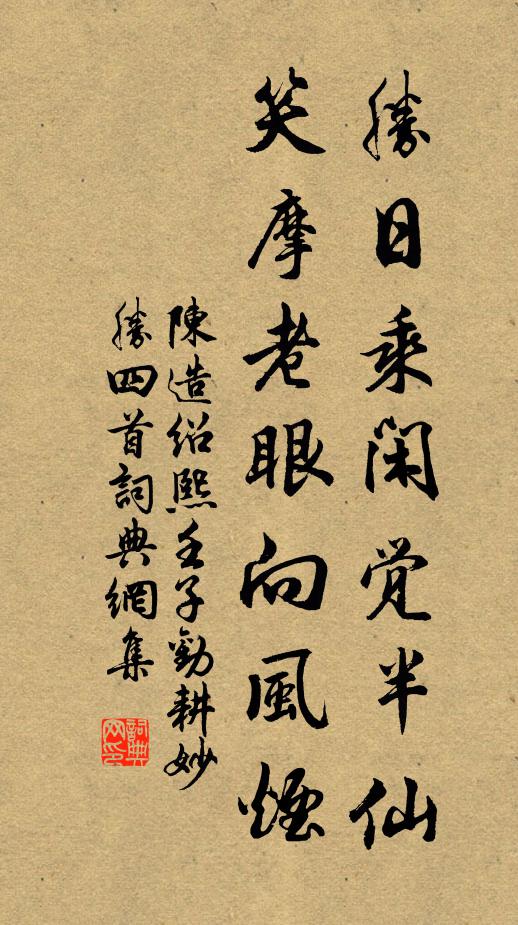 勝日乘閑覺半仙
笑摩老眼向風煙
陳造紹熙壬子勸耕妙
勝四首詞典網集
詞典網印